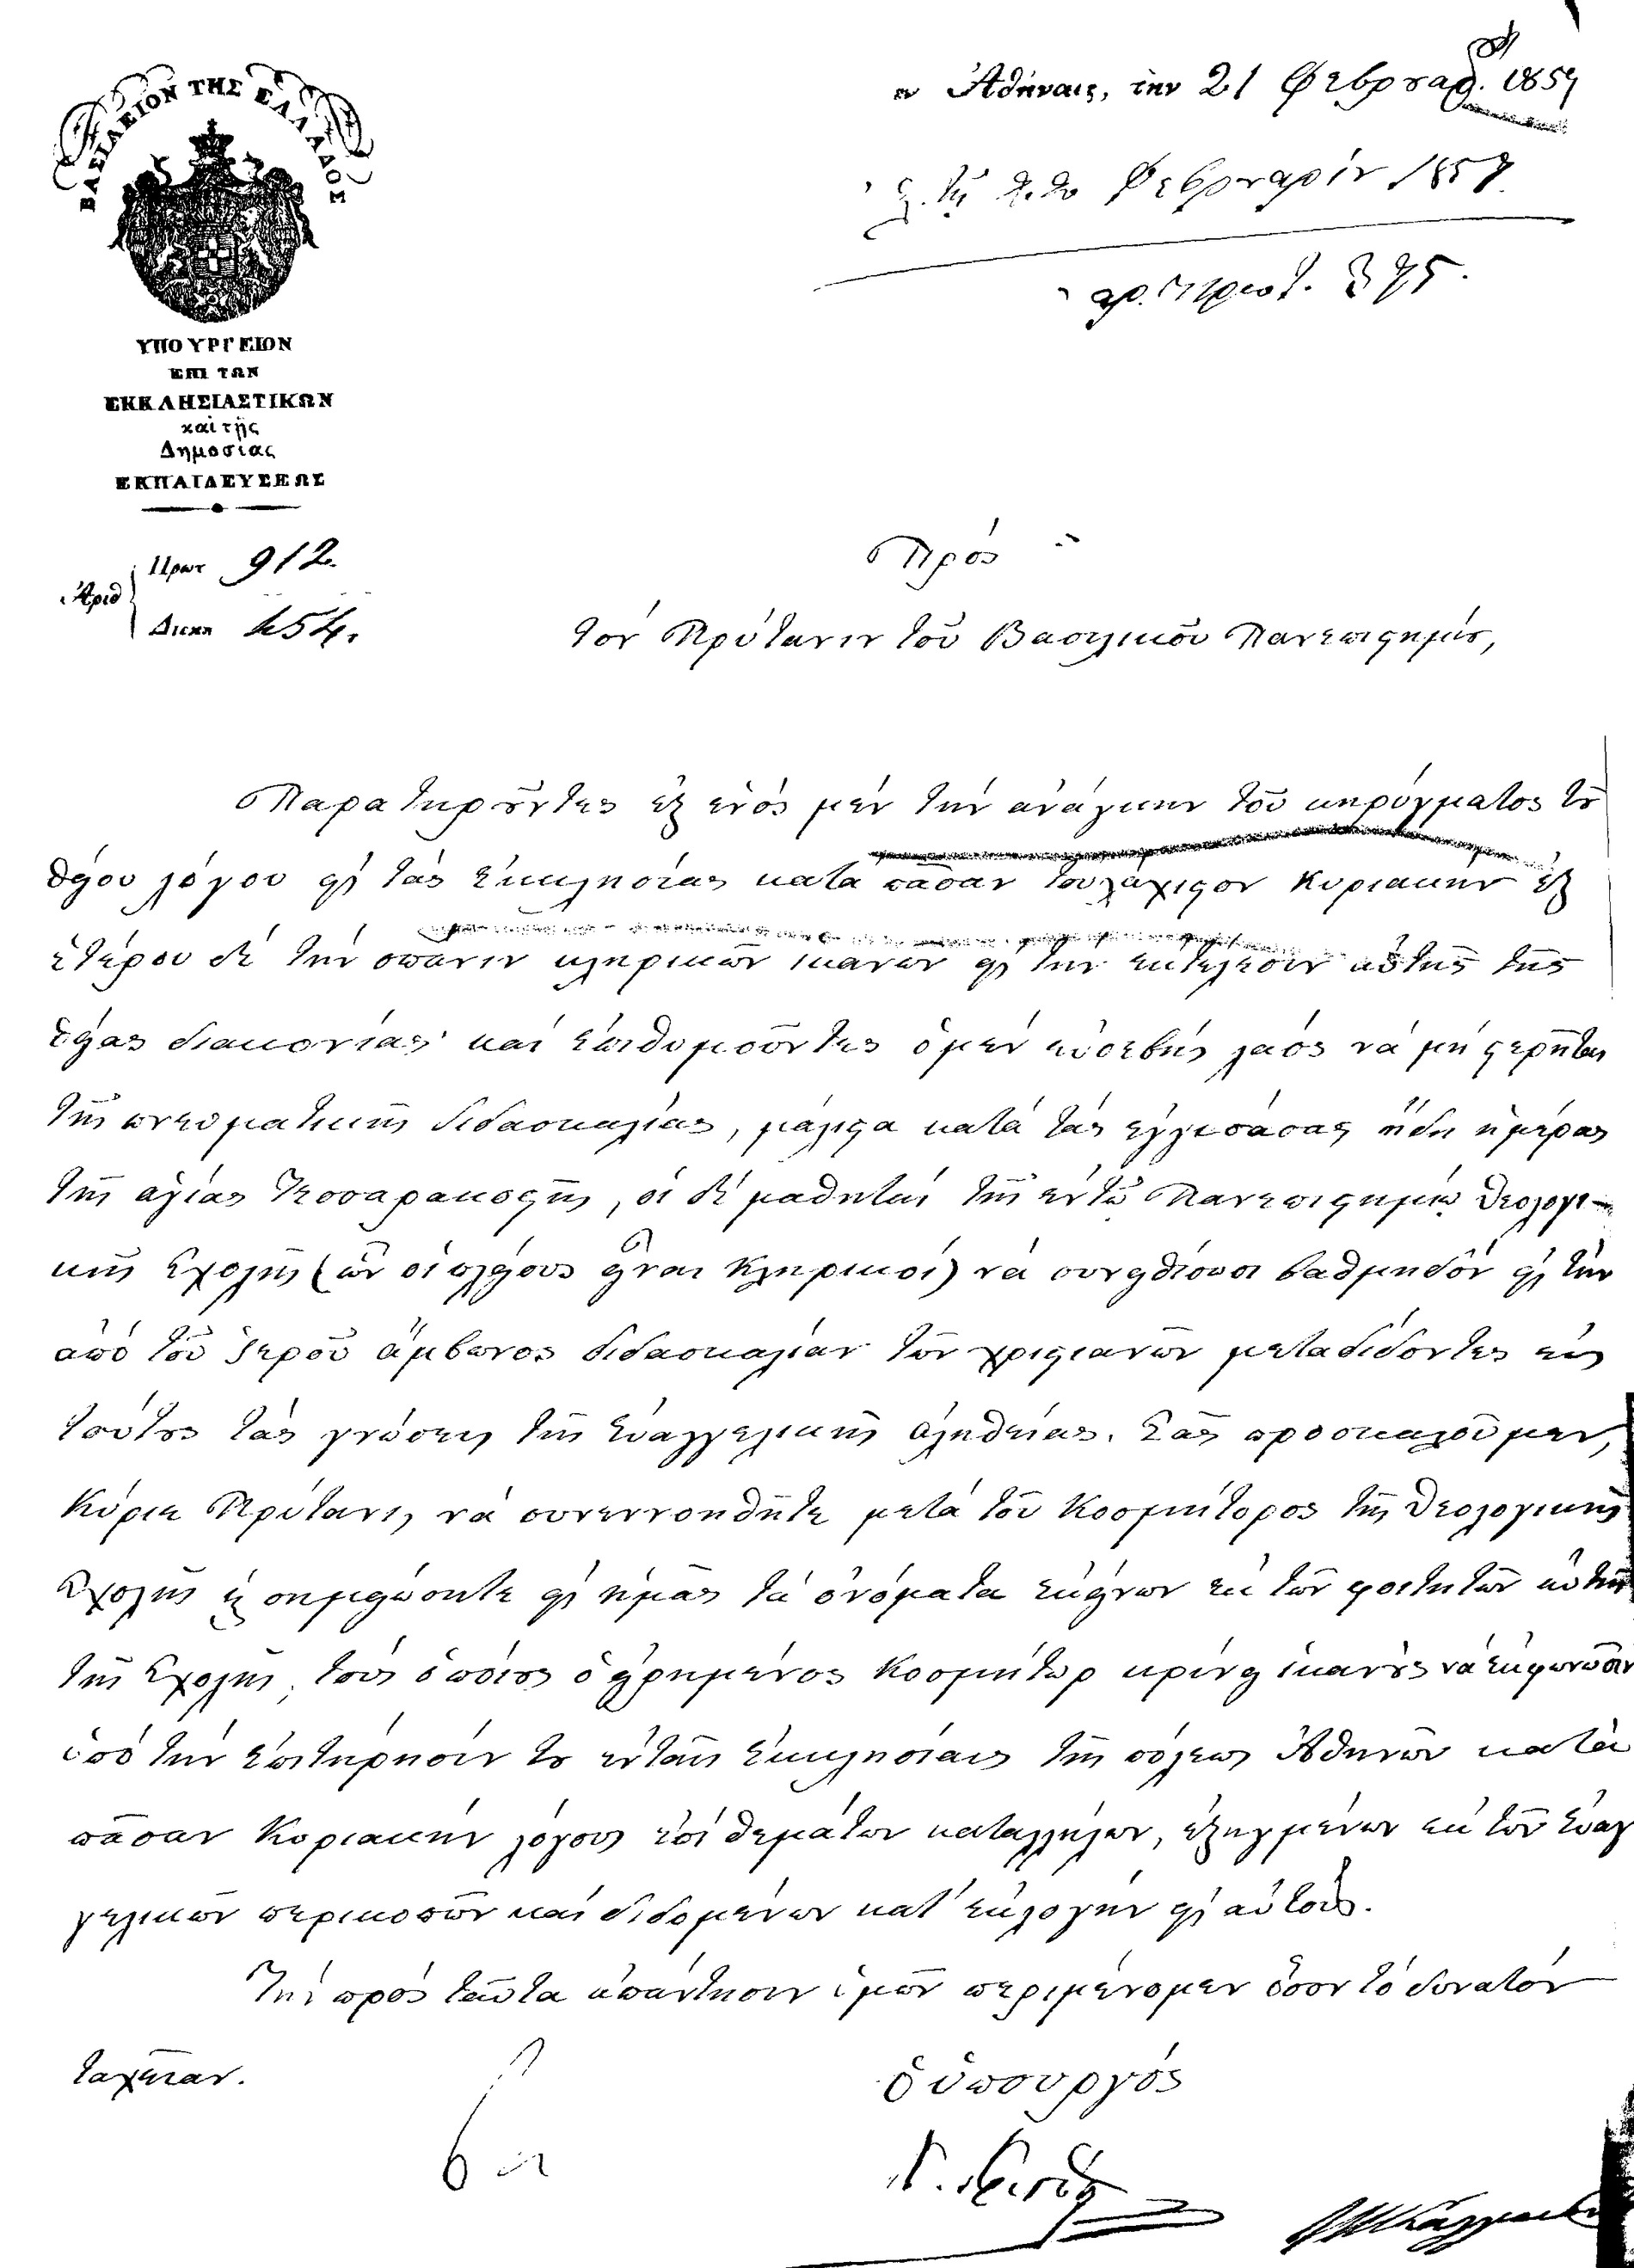 ΒΑΣΙΛΕΙΟΝ ΤΗΣ ΕΛΛΑΔΟΣ
ΥΠΟΥΡΓΕΙΟΝ
ΕΠΙ ΤΩΝ
ΕΚΚΛΗΣΙΑΣΤΙΚΩΝ
καὶ τῆς
Δημοσίας
ΕΚΠΑΙΔΕΥΣΕΩΣ
Ἀριθ
Πρωτ 912.
Διεκπ 454.
ἐν Ἀθήναις, τὴν 21 Φεβρουαρ. 1857
τῇ 22 Φεβρουαρίου 1857.
ἀρ. Πρωτ. 375.
Πρὸς
τὸν Πρύτανιν τοῦ Βασιλικοῦ Πανεπιστημίου,
Παρατηροῦντες ἐξ ἑνὸς μὲν τὴν ἀνάγκην τοῦ κηρύγματος τοῦ
θείου λόγου εἰς τὰς Ἐκκλησίας κατὰ πᾶσαν τουλάχιστον Κυριακὴν ἐξ
ἑτέρου δὲ τὴν σπάνιν κληρικῶν ἱκανῶν εἰς τὴν ἐκτέλεσιν αὐτῆς τῆς
θείας διακονίας· καὶ ἐπιθυμοῦντες ὁ μὲν εὐσεβὴς λαὸς νὰ μὴ στερῆται
τῆς πνευματικῆς διδασκαλίας, μάλιστα κατὰ τὰς ἐγγισάσας ἤδη ἡμέρας
τῆς ἁγίας Τεσσαρακοστῆς, οἱ δὲ μαθηταὶ τῆς ἐν τῷ Πανεπιστημίῳ Θεολογι-
κῆς Σχολῆς (ὧν οἱ πλείους εἶναι Κληρικοὶ) νὰ συνειθίσωσι βαθμηδὸν εἰς τὴν
ἀπὸ τοῦ Ἱεροῦ ἄμβωνος διδασκαλίαν τῶν χριστιανῶν μεταδίδοντες εἰς
τούτους τὰς γνώσεις τῆς Εὐαγγελικῆς ἀληθείας. Σᾶς προσκαλοῦμεν,
Κύριε Πρύτανι, νὰ συνεννοηθῆτε μετὰ τοῦ Κοσμήτορος τῆς Θεολογικῆς
Σχολῆς καὶ σημειώσητε εἰς ἡμᾶς τὰ ὀνόματα ἐκείνων ἐκ τῶν φοιτητῶν αὐτῆς
τῆς Σχολῆς, τοὺς ὁποίους ὁ εἰρημένος Κοσμήτωρ κρίνει ἱκανοὺς νὰ ἐκφωνῶσιν
ὑπὸ τὴν ἐπιτήρησίν του ἐν ταῖς Ἐκκλησίαις τῆς πόλεως Ἀθηνῶν κατὰ
πᾶσαν Κυριακὴν λόγους ἐπὶ θεμάτων καταλλήλων, ἐξηγμένων ἐκ τῶν Εὐαγ
γελικῶν περικοπῶν καὶ διδομένων κατ' ἐκλογὴν εἰς αὐτούς.
Τὴν πρὸς ταῦτα ἀπάντησιν ὑμῶν περιμένομεν ὅσον τὸ δυνατὸν
ταχεῖαν.
ὁ ὑπουργὸς